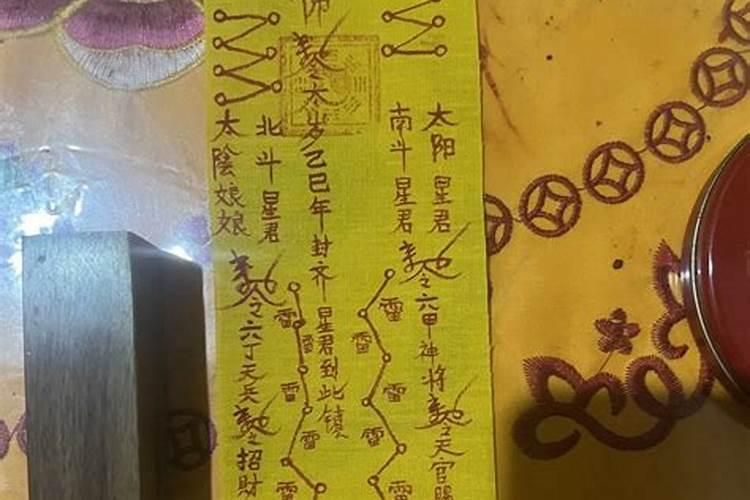 太陽星君
南斗星君
敕令六甲神將敕令天官賜
雷
雷
雷
雷
雷
師敕令太岁己巳年封齐星君到此鎮
雷
雷
雷
雷
雷
北斗星君
太陰娘娘
敕令六丁天兵敕令招財